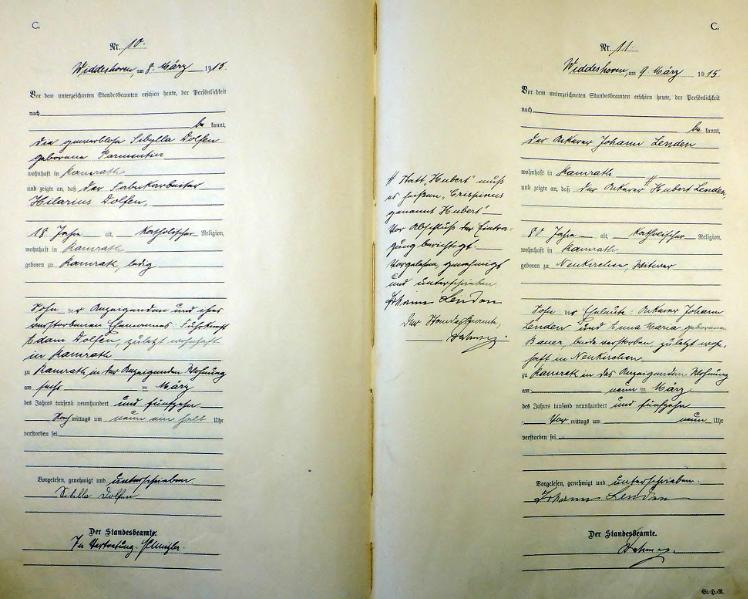 C.
Nr. 10.
Widdeshoven, am 8. März 1915.
Vor dem unterzeichneten Standesbeamten erschien heute, der Persönlichkeit
nach
be kannt,
die gewerblose Sibylla Dolfen
geborene Parmentin
wohnhaft in Ramrath
und zeigte an, daß der Fabrikarbeiter
Hilarius Dolfen,
18 Jahre alt, katholischer Religion,
wohnhaft in Ramrath
geboren zu Ramrath, ledig
Sohn der Anzeigenden und ihres
verstorbenen Ehemannes
Adam Dolfen, zuletzt wohnhaft
in Ramrath
zu Ramrath, in der Anzeigenden Wohnung
am sechs ten März
des Jahres tausend neunhundert und fünfzehn
Nach mittags um neun ein halb Uhr
verstorben sei
Vorgelesen, genehmigt und unterschrieben
Sibilla Dolfen
Der Standesbeamte.
In Vertretung.
// Statt „Hubert“ muß
es heißen, Crispinus
genannt Hubert –
Vor Abschluß der Eintra-
gung berichtigt –
Vorgelesen, genehmigt
und unterschrieben
Johann Lenden
Der Standesbeamte,
C.
Nr. 11.
Widdeshoven, am 9. März 1915
Vor dem unterzeichneten Standesbeamten erschien heute, der Persönlichkeit
nach
be kannt,
der Ackerer Johann Lenden
wohnhaft in Ramrath
und zeigte an, daß der Ackerer // Hubert Lenden,
81 Jahre alt, katholischer Religion,
wohnhaft in Ramrath
geboren zu Neukirchen, Witwer
Sohn der Eheleute: Ackerer Johann
Lenden und Anna Maria geborene
Bauer, beide verstorben, zuletzt wohn-
haft in Neukirchen
zu Ramrath in des Anzeigenden Wohnung
am neun ten März
des Jahres tausend neunhundert und fünfzehn
Vor mittags um neun Uhr
verstorben sei
Vorgelesen, genehmigt und unterschrieben.
Johann Lenden
Der Standesbeamte.